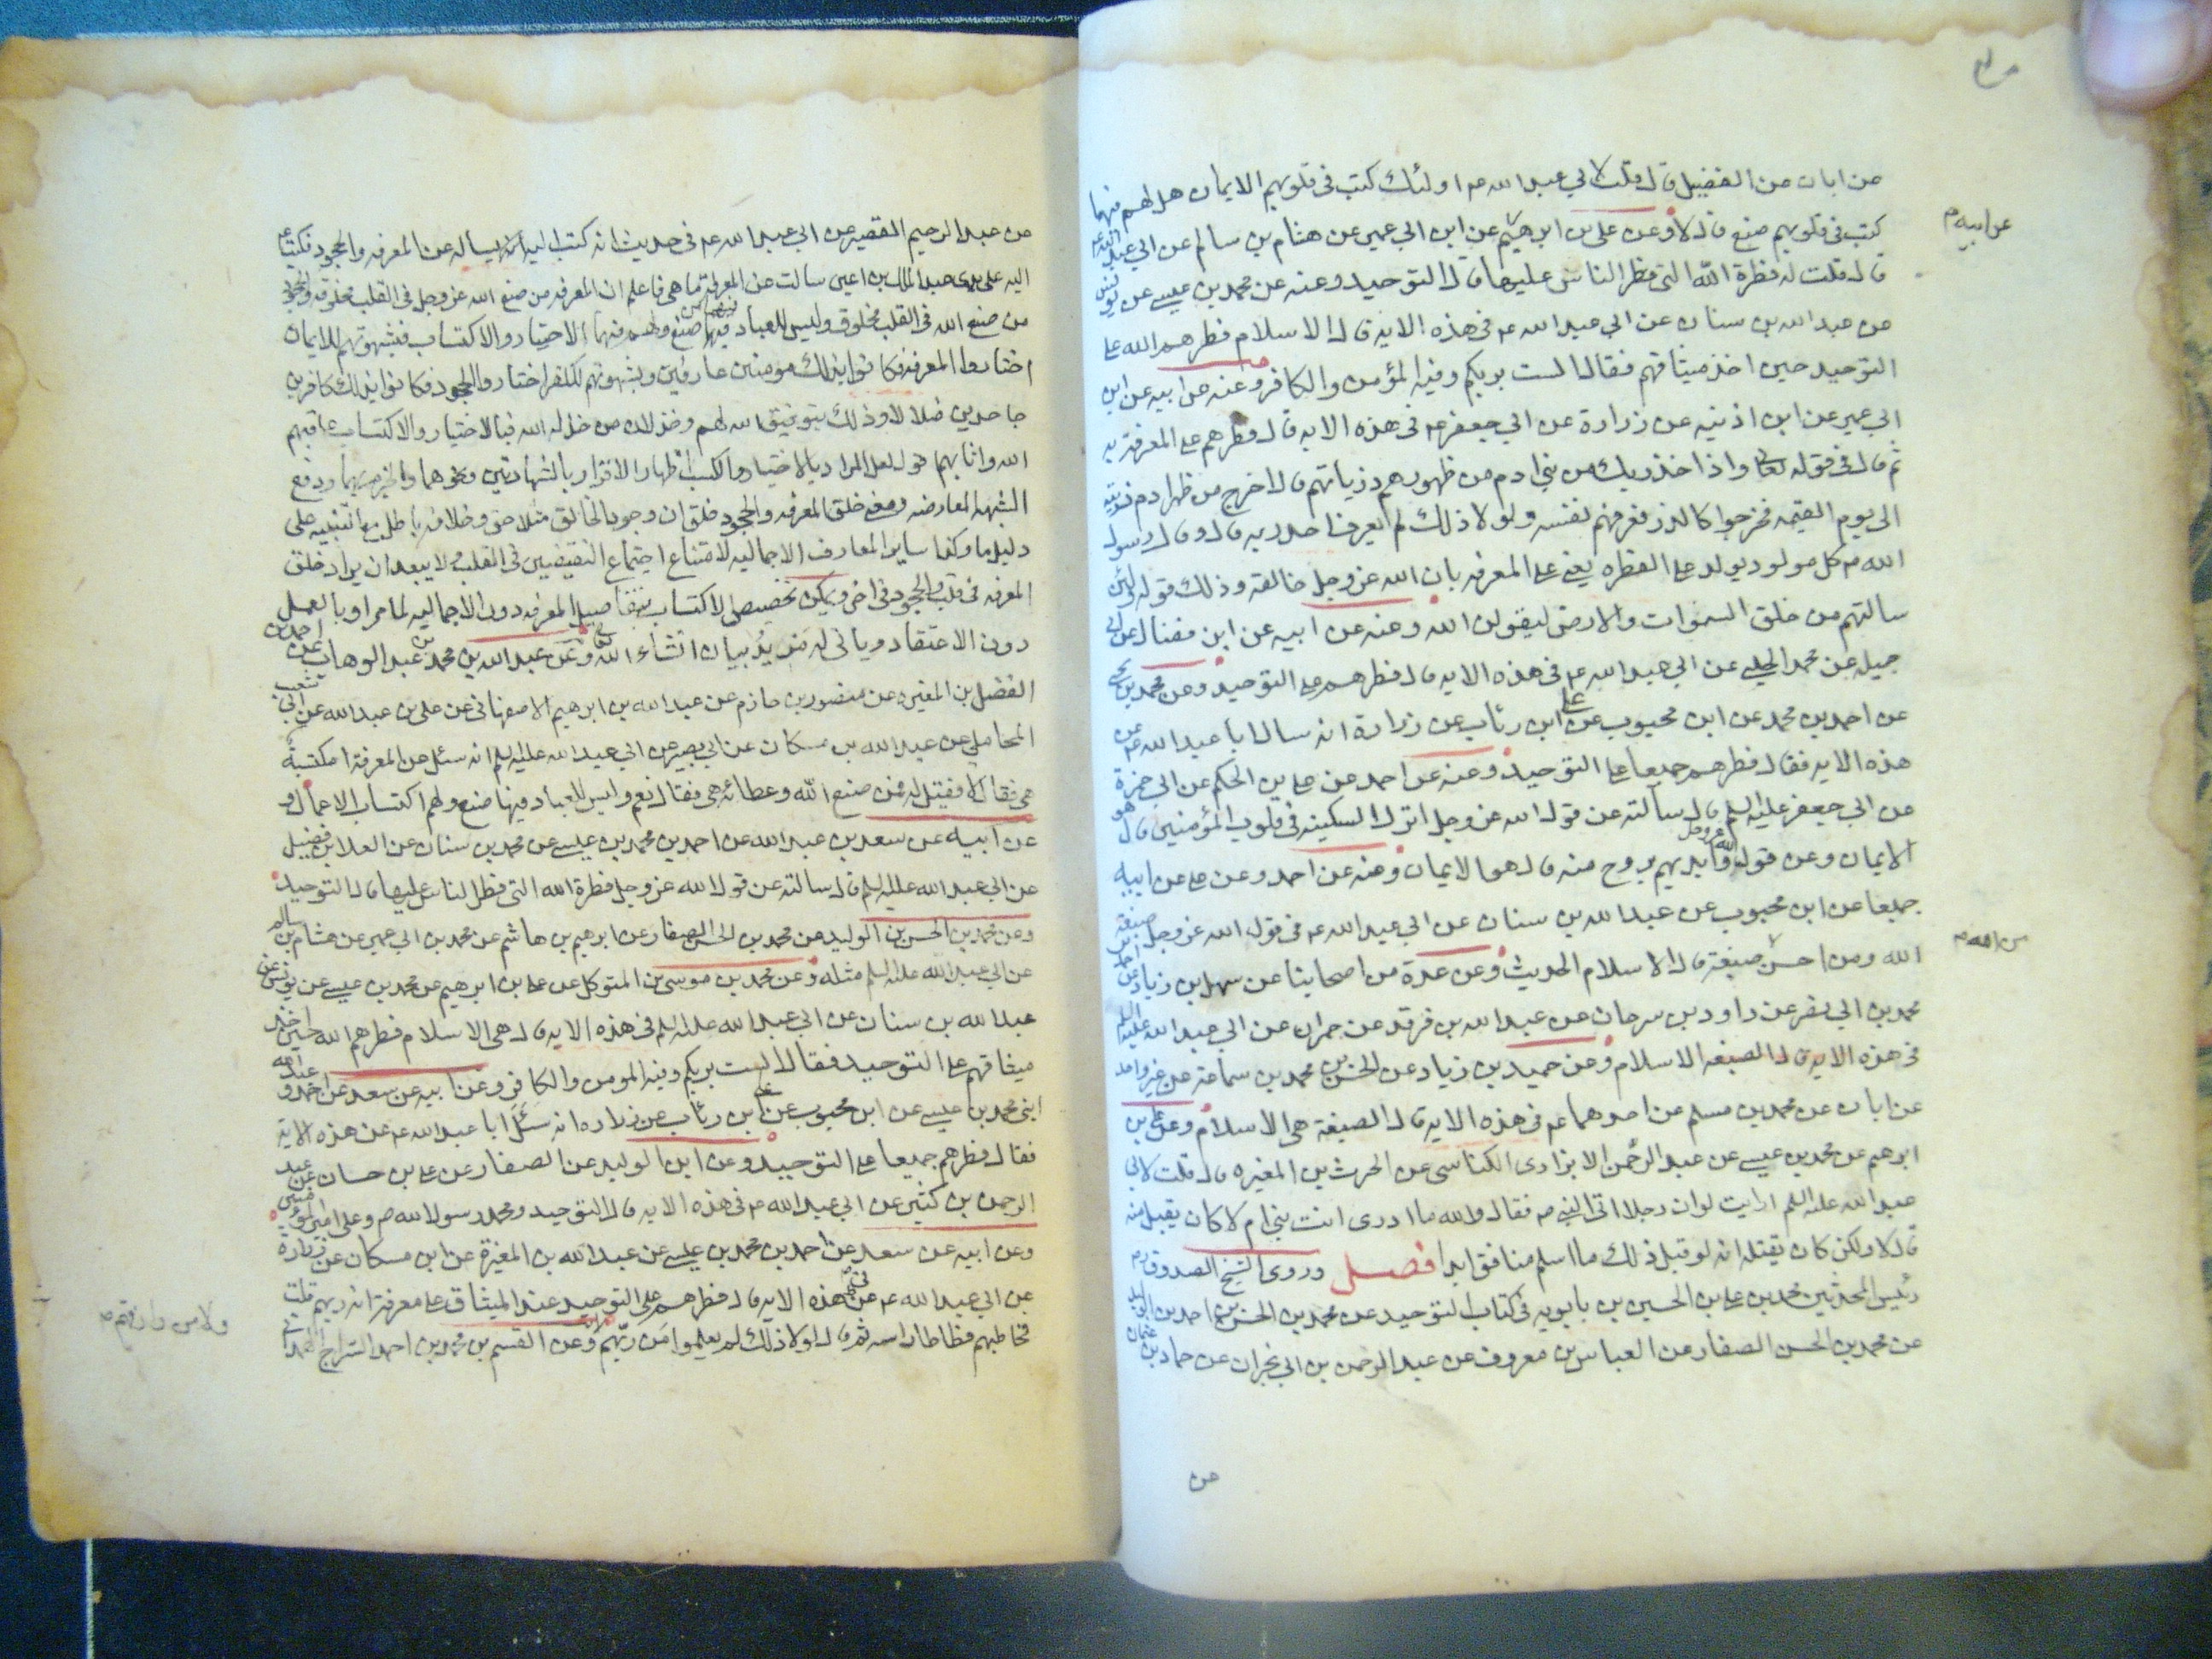 عن ابان عن الفضيل قال قلت لابي عبد الله ع اولئك كتب في قلوبهم الايمان هل لهم فيما
كتب في قلوبهم صنع قال لا وعن علي بن ابرهيم عن ابن ابي عمير عن هشام بن سالم عن ابي عبد الله ع
عن ابيه
قال قلت له فطرة الله التي فطر الناس عليها قال التوحيد وعنه عن محمد بن عيسى عن يونس
عن عبد الله بن سنان عن ابي عبد الله ع في هذه الاية قال الاسلام فطرهم الله على
التوحيد حين اخذ ميثاقهم فقال الست بربكم وفيه المؤمن والكافر وعنه عن ابيه عن ابن
ابي عمير عن ابن اذينه عن زرارة عن ابي جعفر ع في هذه الايه قال فطرهم على المعرفة به
ثم قال في قوله تعالى واذ اخذ ربك من بني ادم من ظهورهم ذرياتهم قال اخرج من ظهر ادم ذريته
الى يوم القيمه فخرجوا كالذر فعرفهم نفسه ولولا ذلك لم يعرف احد ربه قال وقال رسول
الله ص كل مولود يولد على الفطره يعني على المعرفه بان الله عز وجل خالقه وذلك قوله ولئن
سالتهم من خلق السموات والارض ليقولن الله وعنه عن ابيه عن ابن فضال عن ابي
جميله عن محمد الحلبي عن ابي عبد الله ع في هذه الايه قال فطرهم على التوحيد وعن محمد بن يحيى
عن احمد بن محمد عن ابن محبوب عن علي ابن رئاب عن زرارة انه سال ابا عبد الله ع عن
هذه الايه فقال فطرهم جميعا على التوحيد وعنه عن احمد عن علي بن الحكم عن ابي حمزة
عن ابي جعفر عليه السلم قال سألته عن قول الله عز وجل انزل السكينه في قلوب المؤمنين قال هو
الايمان وعن قوله عز وجل وايدهم بروح منه قال هو الايمان وعنه عن احمد وعن علي عن ابيه
جميعا عن ابن محبوب عن عبد الله بن سنان عن ابي عبد الله ع في قول الله عز وجل صبغة
الله ومن احسن من الله صبغة قال الاسلام الحديث وعن عدة من اصحابنا عن سهل بن زياد عن احمد بن
محمد بن ابي نصر عن داود بن سرحان عن عبد الله بن فرقد عن حمران عن ابي عبد الله عليه السلم
في هذه الايه قال الصبغه الاسلام وعن حميد بن زياد عن الحسن بن محمد بن سماعة عن غير واحد
عن ابان عن محمد بن مسلم عن احدهما ع في هذه الايه قال الصبغة هي الاسلام وعن علي بن
ابرهيم عن محمد بن عيسى عن عبد الرحمن الابزاري الكناسي عن الحرث بن المغيره قال قلت لابي
عبد الله عليه السلم ارايت لو ان رجلا اتى النبي ص فقال والله ما ادري انت نبي ام لا كان يقبل منه
قال لا ولكن كان يقتله انه لو قبل ذلك ما اسلم منافق ابدا فصل وروى الشيخ الصدوق
رئيس المحدثين محمد بن علي بن الحسين بن بابويه في كتاب التوحيد عن محمد بن الحسن بن احمد بن الوليد
عن محمد بن الحسن الصفار عن العباس بن معروف عن عبد الرحمن بن ابي نجران عن حماد بن عثمان
عن
عن عبد الرحيم القصير عن ابي عبد الله ع في حديث انه كتب اليه يساله عن المعرفه والجحود فكتب ع
اليه على يدي عبد الملك بن اعين سالت عن المعرفة ما هي فاعلم ان المعرفه من صنع الله عز وجل في القلب مخلوقه والجحود
من صنع الله في القلب مخلوق وليس للعباد فيهما من صنع ولهم فيهما الاختيار والاكتساب فبشهوتهم للايمان
اختاروا المعرفه فكانوا بذلك مومنين عارفين وبشهوتهم للكفر اختاروا الجحود فكانوا بذلك كافرين
جاحدين ضلالا وذلك بتوفيق الله لهم وخذلان من خذله الله فبالاختيار والاكتساب عاقبهم
الله واثابهم قوله لعل المراد بالاختيار والكسب اظهار الاقرار بالشهادتين ونحوهما ودفع
الشبهه المعارضه ومعنى خلق المعرفه والجحود خلق ان وجود الخالق مثلا حق وخلافه باطل مع التنبيه على
دليل ما وكذا ساير المعارف الاجماليه لامتناع اجتماع النقيضين في القلب ولا يبعد ان يراد خلق
المعرفه في قلب والجحود في اخر ويمكن تخصيص الاكتساب بتفاصيل المعرفه دون الاجماليه لما مر او بالعمل
دون الاعتقاد وياتي له مزيد بيان ان شاء الله تعالى وعن عبد الله بن محمد بن عبد الوهاب عن احمد بن
الفضل بن المغيره عن منصور بن عبد الله بن ابرهيم الاصفهاني عن علي بن عبد الله عن ابي شعيب
المحاملي عن عبد الله بن مسكان عن ابي بصير عن ابي عبد الله عليه السلم انه سئل عن المعرفة امكتسبة
هي فقال لا فقيل له فمن صنع الله وعطائه هي فقال نعم وليس للعباد فيها صنع ولهم اكتساب الاعمال و
عن ابيه عن سعد بن عبد الله عن احمد بن محمد بن عيسى عن محمد بن سنان عن العلا بن فضيل
عن ابي عبد الله عليه السلم قال سالته عن قول الله عز وجل فطرة الله التي فطر الناس عليها قال التوحيد
وعن محمد بن الحسن بن الوليد عن محمد بن الحسن الصفار عن ابرهيم بن هاشم عن محمد بن ابي عمير عن هشام بن سالم
عن ابي عبد الله عليه السلم مثله وعن محمد بن موسى بن المتوكل عن علي بن ابرهيم عن محمد بن عيسى عن يونس عن
عبد الله بن سنان عن ابي عبد الله عليه السلم في هذه الايه قال هي الاسلام فطرهم الله حين اخذ
ميثاقهم على التوحيد فقال الست بربكم وفيه المومن والكافر وعن ابيه عن سعد عن احمد وعبد الله
ابني محمد بن عيسى عن ابن محبوب عن علي بن رئاب عن زراره انه سئل ابا عبد الله ع عن هذه الاية
فقال فطرهم جميعا على التوحيد وعن ابن الوليد عن الصفار عن علي بن حسان عن عبد
الرحمن بن كثير عن ابي عبد الله ع في هذه الايه قال التوحيد ومحمد رسول الله ص وعلي امير المؤمنين
وعن ابيه عن سعد عن احمد بن محمد بن عيسى عن عبد الله بن المغيرة عن ابن مسكان عن زراره
عن ابي عبد الله ع هذه الايه قال فطرهم على التوحيد عند الميثاق على معرفة انه ربهم قلت
فخاطبهم فطاطا راسه ثم قال لولا ذلك لم يعلموا من ربهم وعن القسم بن محمد بن احمد السراج الهمداني